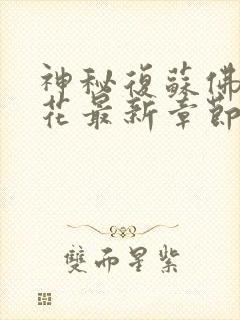 神秘復蘇佛
花最新章節
雙而星紫